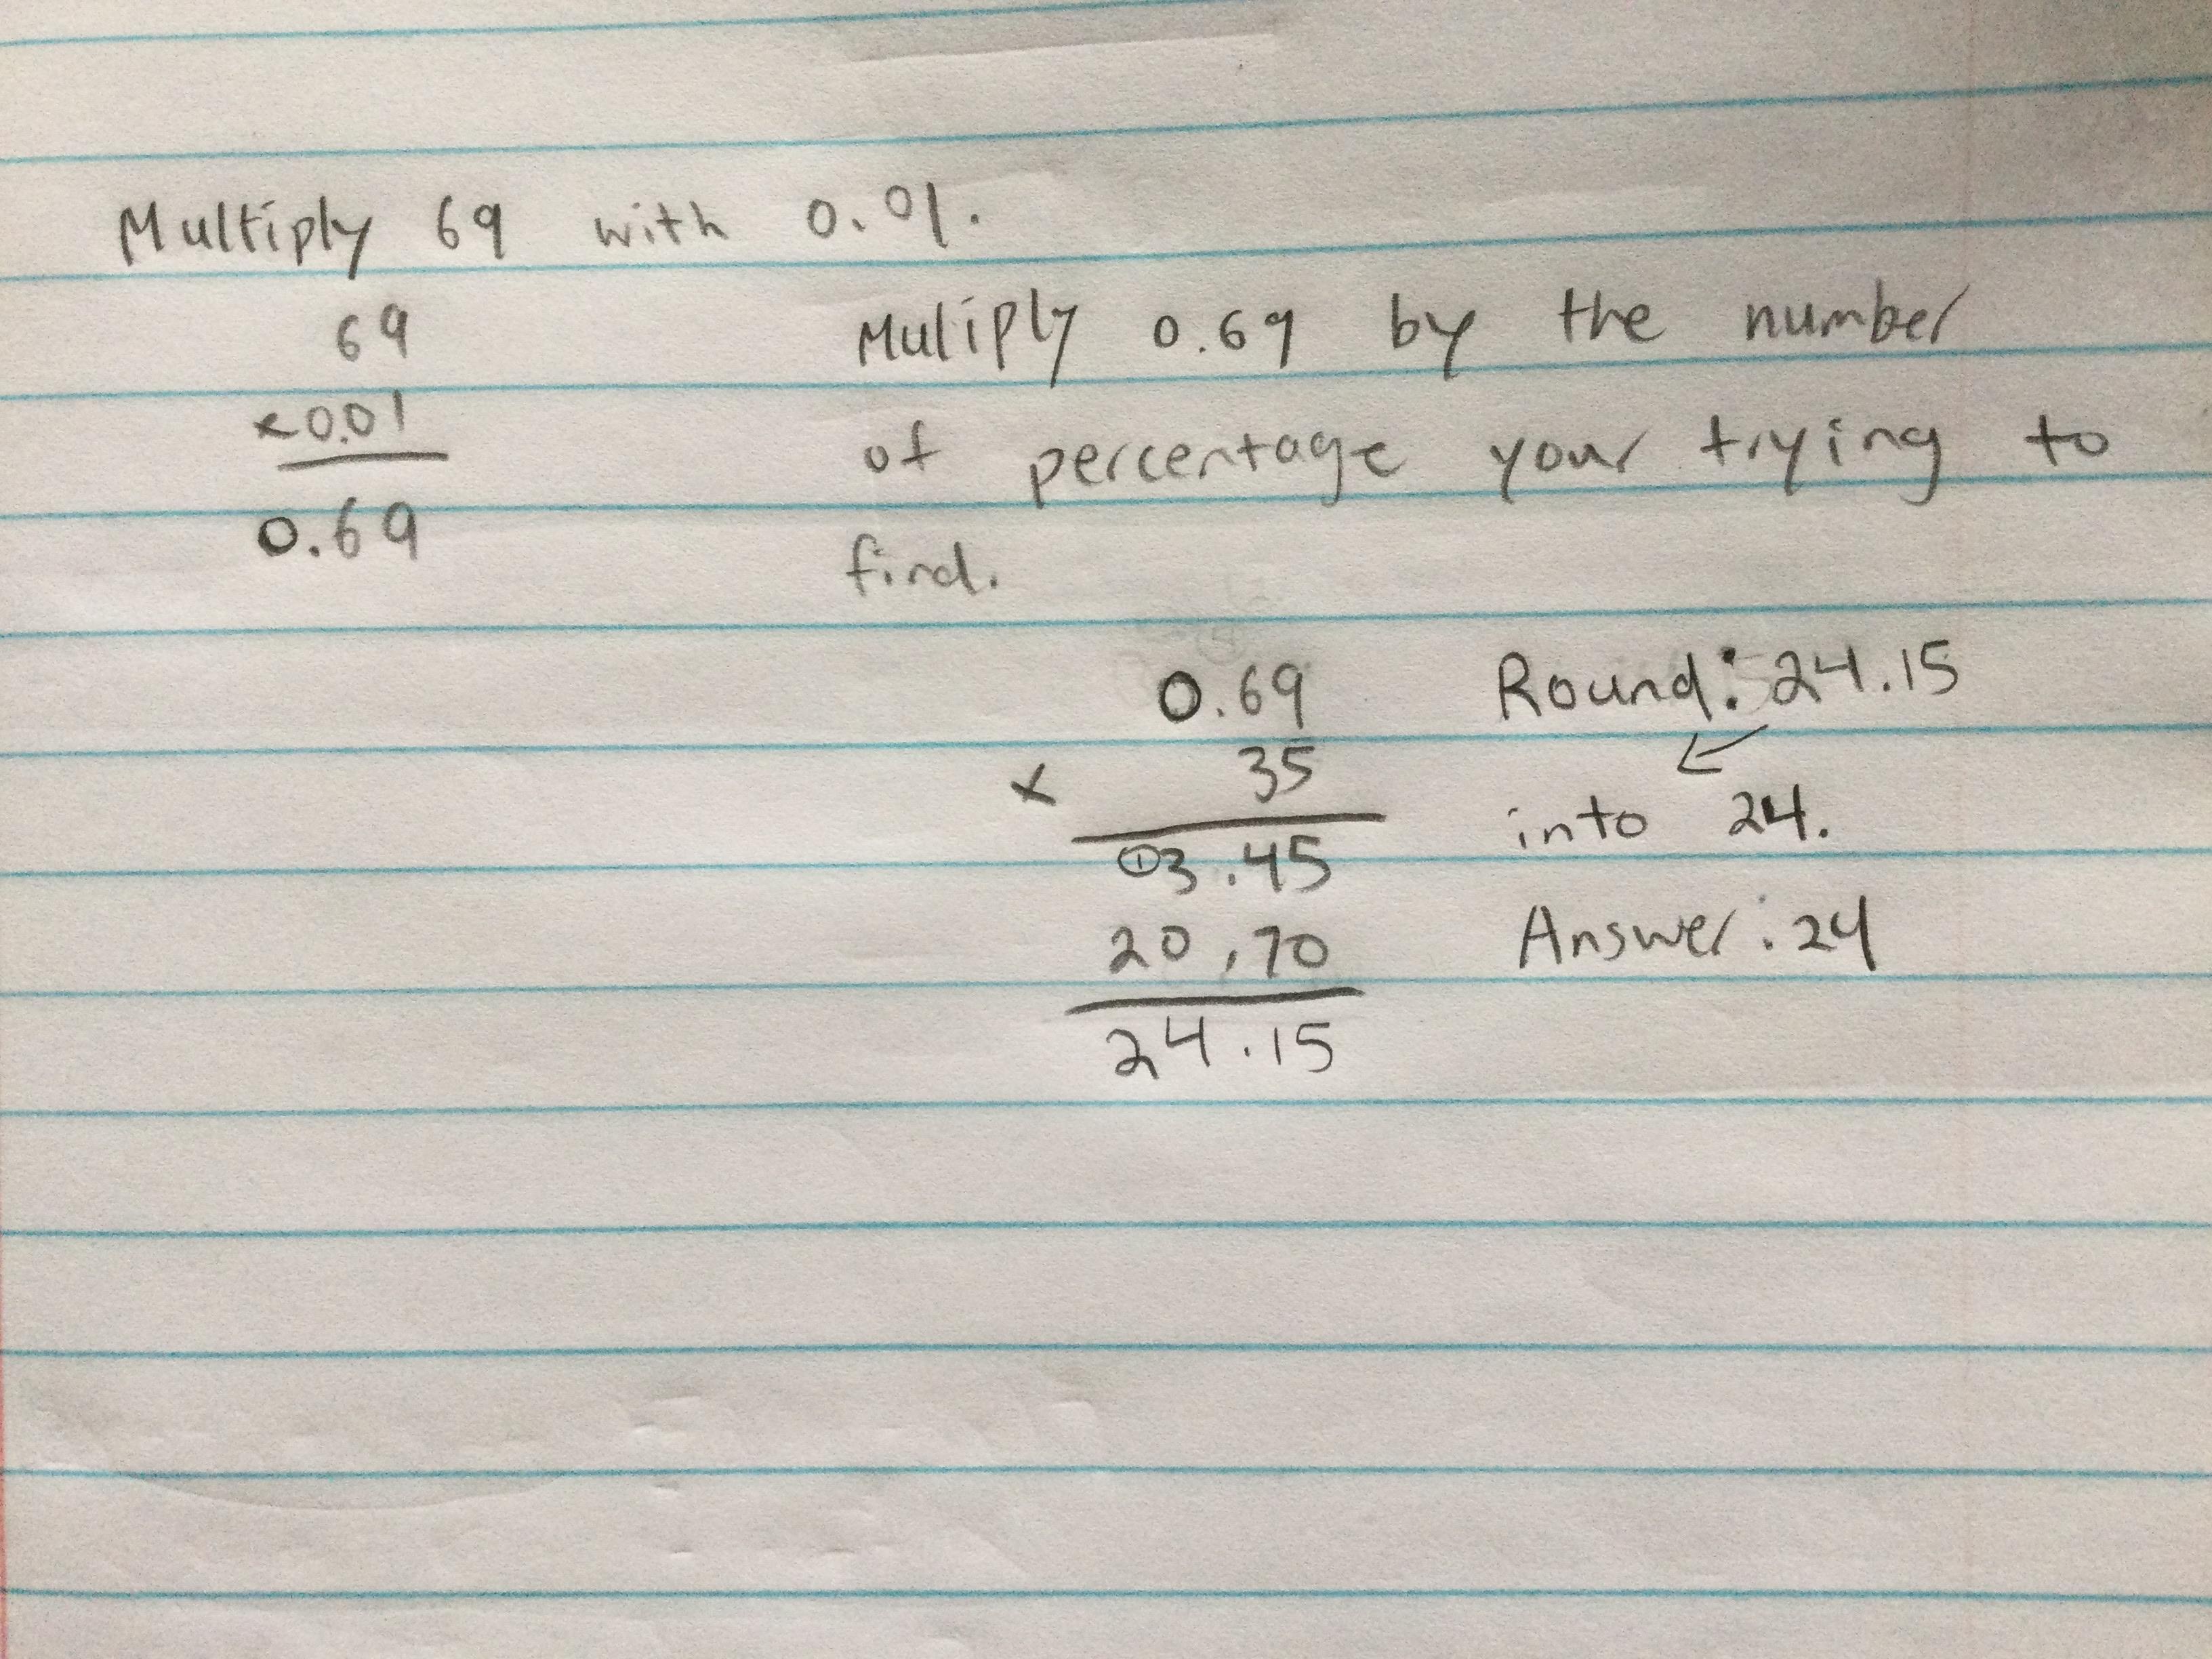 Multiply 69 with 0.01.
69
x0.01
0.69
Muliply 0.69 by the number
of percentage your trying to
find.
0.69
x 35
①3.45
20.70
24.15
Round: 24.15
into 24.
Answer: 24